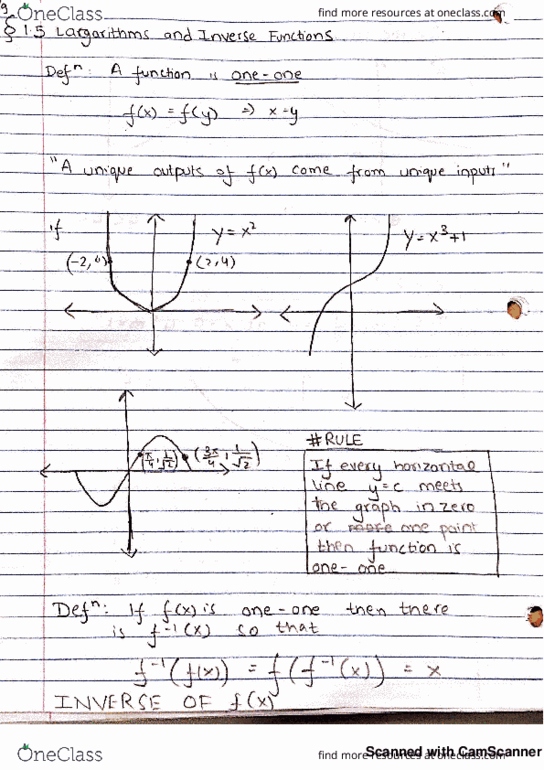 OneClass
find more resources at oneclass.com
§ 1.5 Largarithms and Inverse Functions
Defⁿ: A function is one-one
f(x) = f(y) ⇒ x=y
"A unique outputs of f(x) come from unique inputs"
if
y = x²
(-2,4)
(2,4)
y = x³+1
(π/4, 1/√2)
(3π/4, 1/√2)
#RULE
If every horizontal
line y=c meets
the graph in zero
or more one point
then function is
one-one
Defⁿ: If f(x) is one-one then there
is f⁻¹(x) so that
f⁻¹(f(x)) = f(f⁻¹(x)) = x
INVERSE OF f(x)
OneClass
find more resources at oneclass.com
Scanned with CamScanner